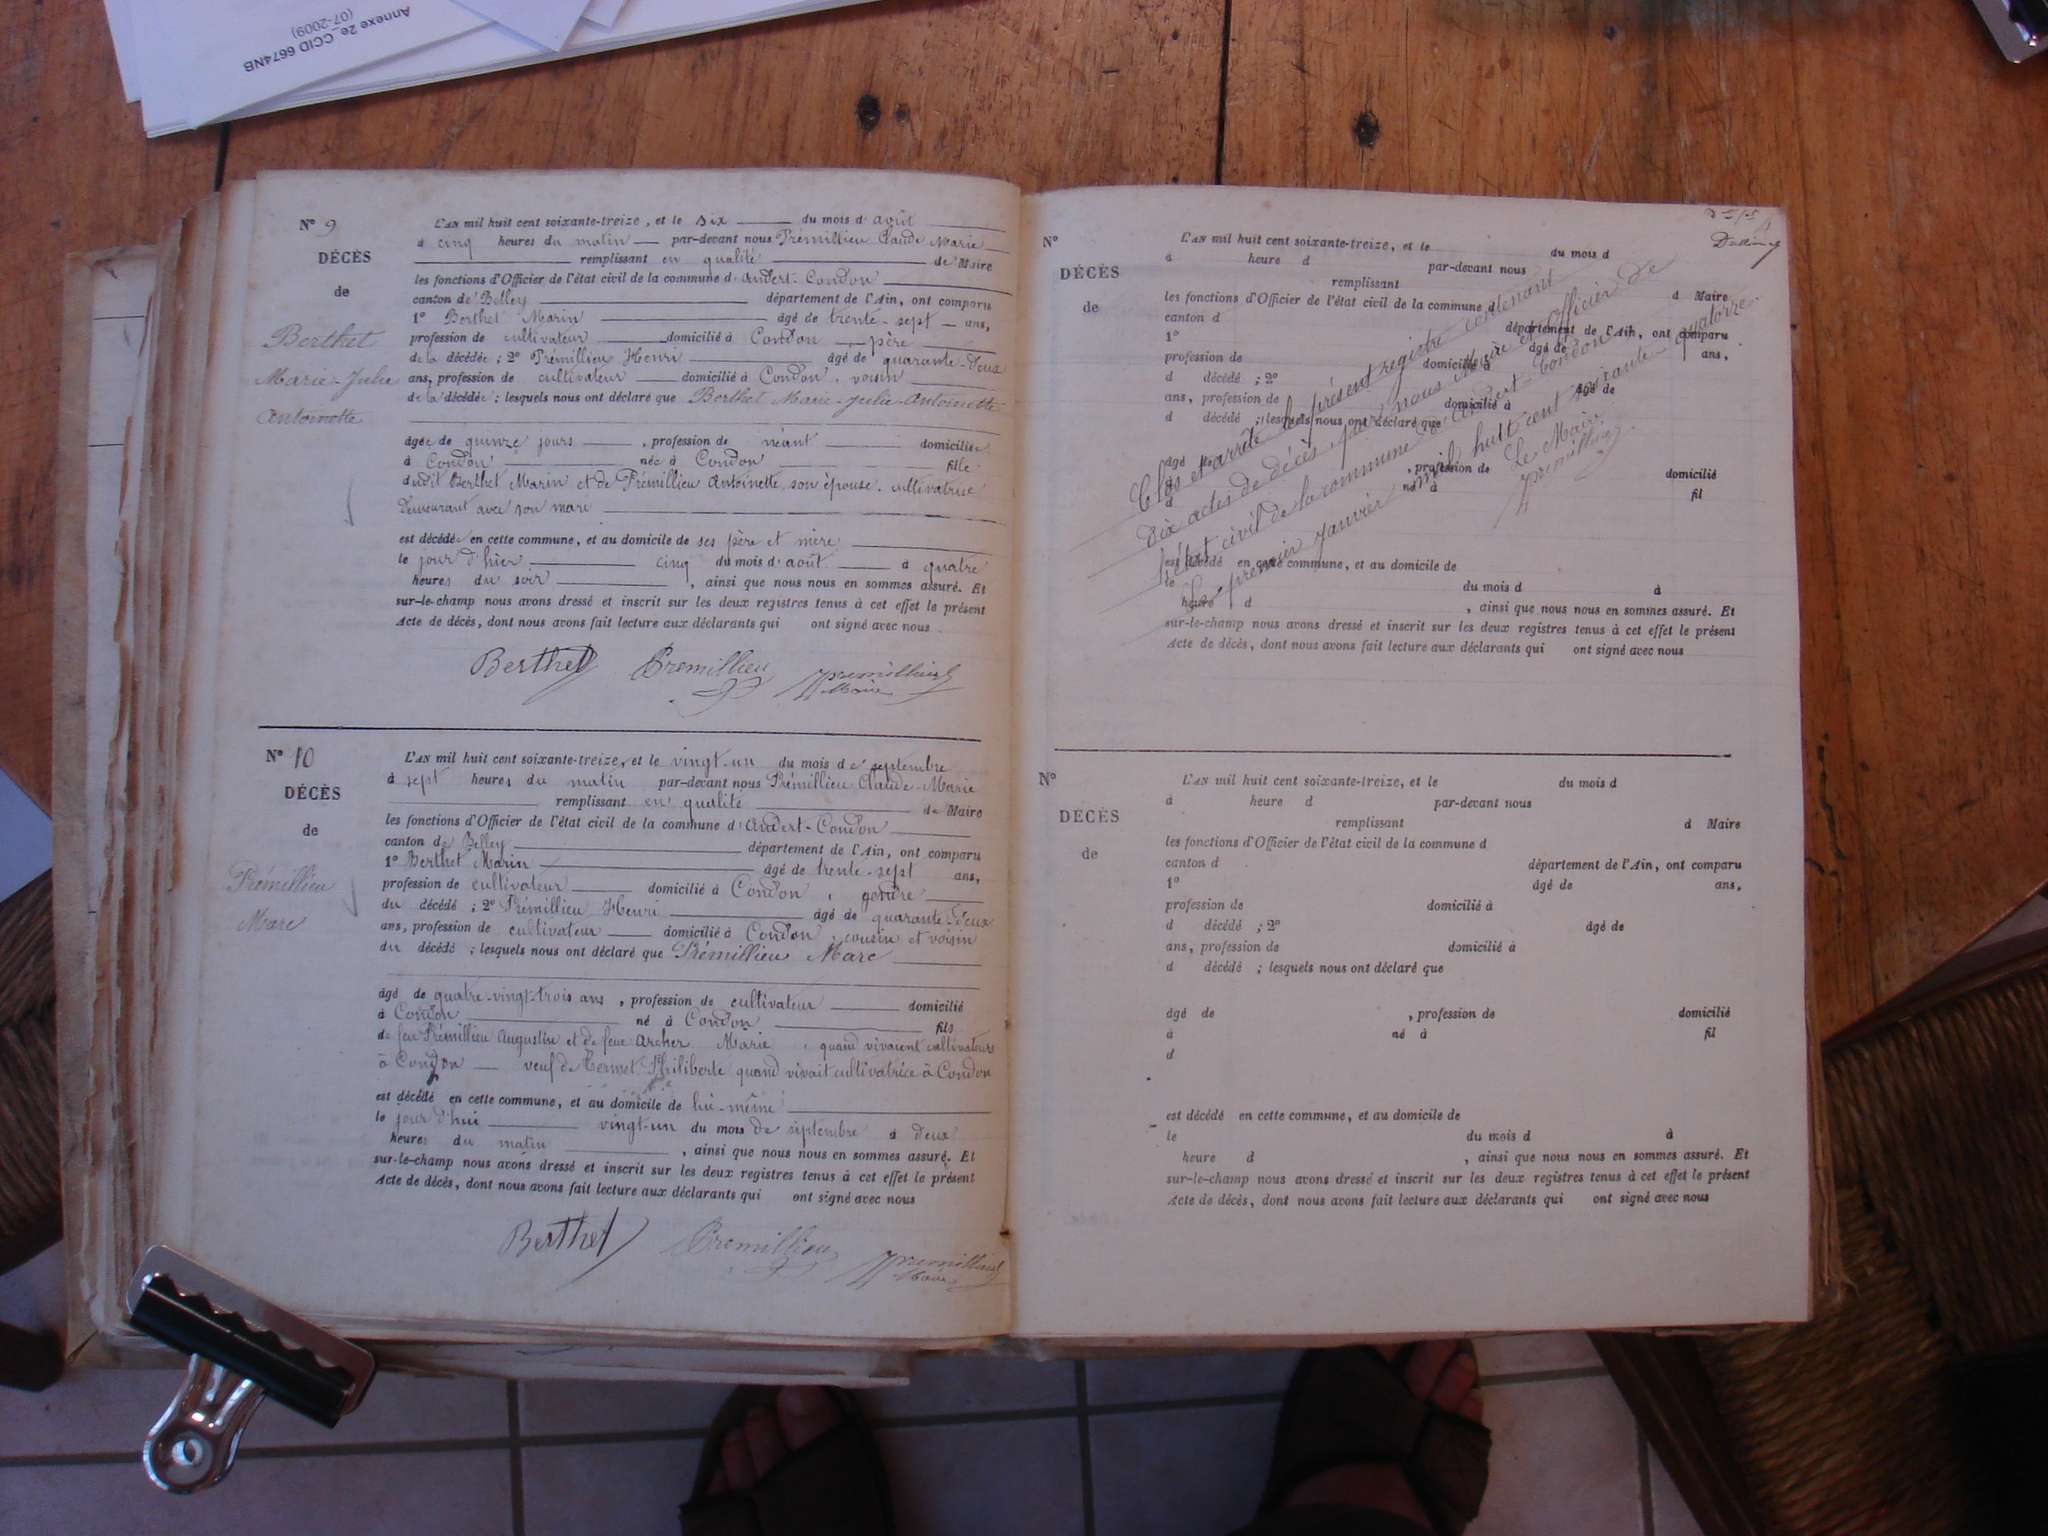 Annexe 2e_CCID 6674NB
(07-2009)
N° 9
DÉCÈS
de
Berthet
Marie-Julie
Antoinette
L'AN mil huit cent soixante-treize, et le six du mois d'août
à cinq heures du matin par-devant nous Prémillieu Claude Marie
remplissant en qualité de Maire
les fonctions d'Officier de l'état civil de la commune d'Andert-Condon
canton de Belley département de l'Ain, ont comparu
1° Berthet Marin âgé de trente-sept ans,
profession de cultivateur domicilié à Condon, père
de la décédée ; 2° Prémillieu Henri âgé de quarante-deux
ans, profession de cultivateur domicilié à Condon, voisin
de la décédée ; lesquels nous ont déclaré que Berthet Marie-Julie-Antoinette
âgée de quinze jours, profession de néant domiciliée
à Condon née à Condon fille
dudit Berthet Marin et de Prémillieu Antoinette, son épouse, cultivatrice
demeurant avec son mari
est décédée en cette commune, et au domicile de ses père et mère
le jour d'hier cinq du mois d'août à quatre
heures du soir, ainsi que nous nous en sommes assuré. Et
sur-le-champ nous avons dressé et inscrit sur les deux registres tenus à cet effet le présent
Acte de décès, dont nous avons fait lecture aux déclarants qui ont signé avec nous
Berthet Premillieu Premillieu
Maire
N° 10
DÉCÈS
de
Prémillieu
Marc
L'AN mil huit cent soixante-treize, et le vingt-un du mois de septembre
à sept heures du matin par-devant nous Prémillieu Claude-Marie
remplissant en qualité de Maire
les fonctions d'Officier de l'état civil de la commune d'Andert-Condon
canton de Belley département de l'Ain, ont comparu
1° Berthet Marin âgé de trente-sept ans,
profession de cultivateur domicilié à Condon, gendre
du décédé ; 2° Prémillieu Henri âgé de quarante-deux
ans, profession de cultivateur domicilié à Condon, cousin et voisin
du décédé ; lesquels nous ont déclaré que Prémillieu Marc
âgé de quatre-vingt-trois ans, profession de cultivateur domicilié
à Condon né à Condon fils
de feu Prémillieu Augustin et de feue Archer Marie, quand vivaient cultivateurs
à Condon veuf de Termet Philiberte quand vivait cultivatrice à Condon
est décédé en cette commune, et au domicile de lui-même
le jour d'hui vingt-un du mois de septembre à deux
heures du matin, ainsi que nous nous en sommes assuré. Et
sur-le-champ nous avons dressé et inscrit sur les deux registres tenus à cet effet le présent
Acte de décès, dont nous avons fait lecture aux déclarants qui ont signé avec nous
Berthet Premillieu Premillieu
Maire
N°
DÉCÈS
de
L'AN mil huit cent soixante-treize, et le du mois d
à heure d par-devant nous
remplissant d Maire
les fonctions d'Officier de l'état civil de la commune d
canton d département de l'Ain, ont comparu
1° âgé de ans,
profession de domicilié à
d décédé ; 2° âgé de
ans, profession de domicilié à
d décédé ; lesquels nous ont déclaré que
âgé de , profession de domicilié
à né à fil
d
est décédé en cette commune, et au domicile de
le du mois d à
heure d , ainsi que nous nous en sommes assuré. Et
sur-le-champ nous avons dressé et inscrit sur les deux registres tenus à cet effet le présent
Acte de décès, dont nous avons fait lecture aux déclarants qui ont signé avec nous
Clos et arrêté le présent registre contenant
dix actes de décès, par nous Maire et Officier de
l'état civil de la commune d'Andert-Condon
le premier janvier mil huit cent soixante-quatorze.
Le Maire,
Premillieu
N°
DÉCÈS
de
L'AN mil huit cent soixante-treize, et le du mois d
à heure d par-devant nous
remplissant d Maire
les fonctions d'Officier de l'état civil de la commune d
canton d département de l'Ain, ont comparu
1° âgé de ans,
profession de domicilié à
d décédé ; 2° âgé de
ans, profession de domicilié à
d décédé ; lesquels nous ont déclaré que
âgé de , profession de domicilié
à né à fil
d
est décédé en cette commune, et au domicile de
le du mois d à
heure d , ainsi que nous nous en sommes assuré. Et
sur-le-champ nous avons dressé et inscrit sur les deux registres tenus à cet effet le présent
Acte de décès, dont nous avons fait lecture aux déclarants qui ont signé avec nous